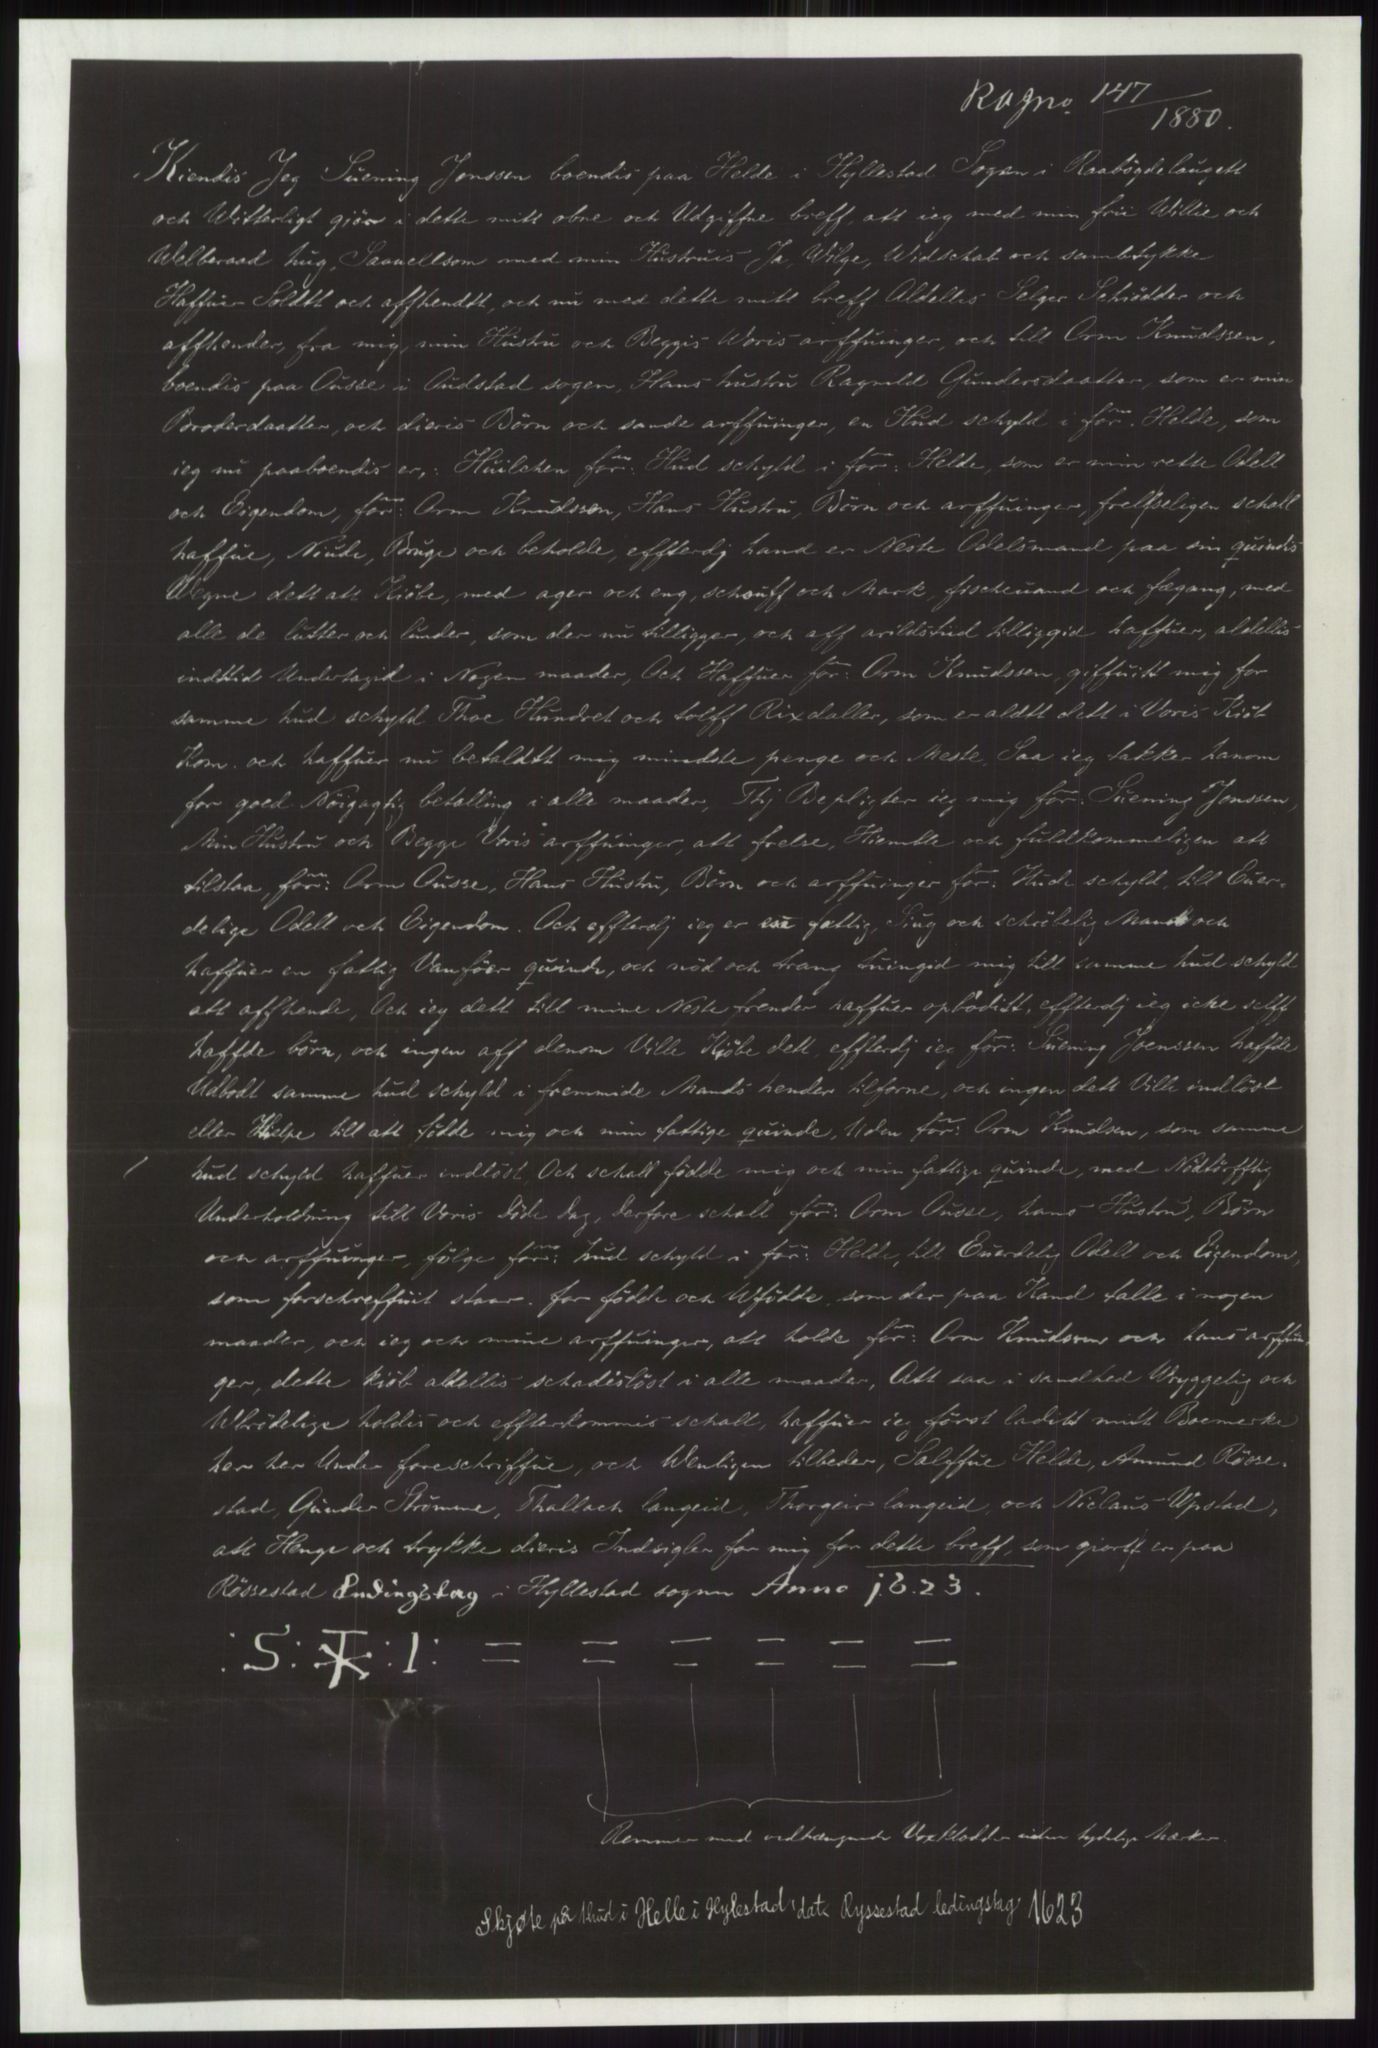 Ragno. 147/1880.
Kiendis Jeg Suening Jonssen boendis paa Helde i Hyllestad Sogen i Raabögdelaugett
och Witterligt giör i dette mitt obne och Udgiffne breff, att ieg med min frii Willie och
Welberaad hug, Saauellsom med min Hustruis Ja, Wilge, Widschab och sambtykke
Haffuer Soldtt och affhendtt, och nu med dette mitt breff Aldellis Selger Schiödder och
affhender, fra mig, min Hustru och Beggis Woris arffuinger, och till Orm Knudssen,
boendis paa Ousse i Oudstad sogen, Hans hustru Ragnild Gundersdaatter, som er min
Broderdaatter, och dieris Börn och sande arffuinger, en Hud schyld i för: Helde, som
ieg nu paaboendis er,: Huilchen för: Hud schyld i för: Helde, som er min rette Odell
och Eigendom, för: Orm Knudssen, Hans Hustru, Börn och arffuinger, frelseligen schall
haffue, Niude, Bruge och beholde, effterdj hand er Neste Odelsmand paa sin quindis
Wegne dett att Kiöbe, med ager och eng, schouff och Mark, fischeuand och fægang, med
alle de lutter och lunder, som der nu tilligger, och aff arildstid tilliggid haffuer, aldellis
indttid Undertagid i Nogen maader, Och Haffuer för: Orm Knudssen, giffuitt mig for
samme hud schyld Thoe Hundret och tolff Rixdaller, som er aldtt dett i Voris Kiöb
Kom. och haffuer nu betaldtt mig mindste penge och Meste, Saa ieg takker hanom
for goed Nöigagtig betalling i alle maader, Thj Bepligter ieg mig för: Suening Jonssen,
Min Hustru och Begge Voris arffuinger, att frelse, Hiemble och fuldkommeligen att
tilstaa, för: Orm Ousse, Hans Hustru, Börn och arffuinger för: Hude schyld, till Euer-
delige Odell och Eigendom. Och effterdj ieg er fattig, Siug och schröbelig Mand och
haffuer en fattig Vanföer quinde, och nöd och trang tuingid mig till samme hud schyld
att affhende, Och ieg dett till mine Neste frender haffuer opbödit, effterdj ieg icke selff
haffde börn, och ingen aff denom Ville Kiöbe dett, effterdj ieg för: Suening Joenssen haffde
Udbodt samme hud schyld i fremmide Mands hender tilforne, och ingen dett Ville indlöst
eller Hielpe till att födde mig och min fattige quinde, Uden för: Orm Knudsen, som samme
hud schyld haffuer indlöst, Och schall födde mig och min fattige quinde, med Nödtörfftig
Underholdning till Voris Döde Dag, derfore schall för: Orm Ousse, hans Hustru, Börn
och arffuinger, fölge för: hud schyld i för: Helde, till Euerdelig Odell och Eigendom,
som forschreffuit staar. for födde och Ufödde, som der paa Kand talle i nogen
maader, och ieg och mine arffuinger, att holde för: Orm Knudssen och hans arffuin-
ger, dette kiöb aldellis schadislöst i alle maader, Att saa i sandhed Uryggelig och
Ubrödelige holdis och effterkommis schall, haffuer ieg först laditt mitt Boemerke
her her Under foreschriffue, och Wenligen tilbeder, Salffue Helde, Amund Rösse-
stad, Gunder Strömme, Thallach langeid, Thorgeir langeid, och Niclaus Upstad,
att Henge och trykke dieris Indsigler for mig for dette breff, som giortt er paa
Rössestad Lædingsdag i Hyllestad sogen Anno 1623.
:S: :I: = = = = = =
Remmer med vedhængende Voxklodder uden tydelige Mærker.
Skjøte på 1 hud i Helle i Hylestad, dat. Ryssestad ledingstag 1623